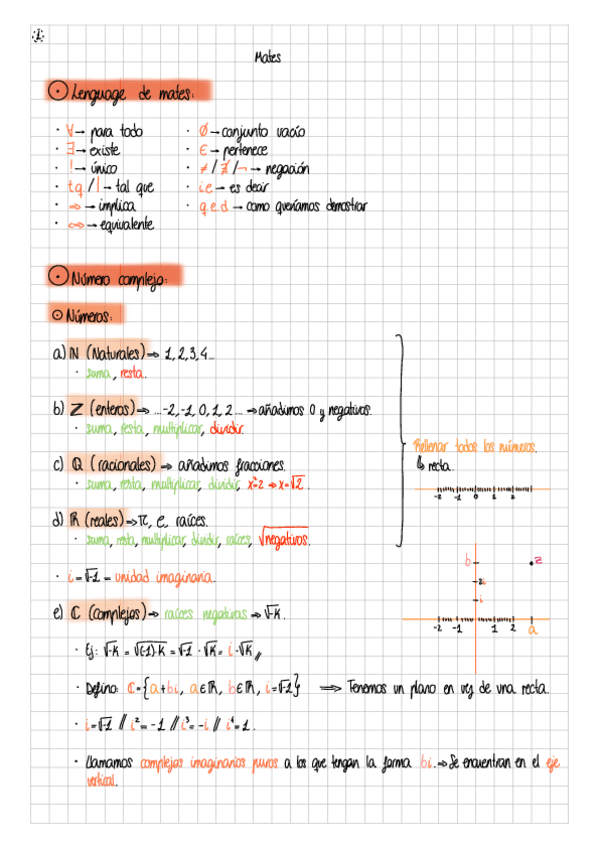 1
Mates
Lenguage de mates:
· ∀→ para todo
· ∃→ existe
· !→ único
· t.q / | → tal que
· ⇒ → implica
· ⇔ → equivalente
· Ø → conjunto vacío
· ∈ → pertenece
· ≠ / ∄ / ¬ → negación
· i.e → es decir
· q.e.d → como queríamos demostrar
Número complejo:
Números:
a) ℕ (Naturales) ⇒ 1, 2, 3, 4...
· suma, resta.
b) ℤ (enteros) ⇒ ...-2, -1, 0, 1, 2... ⇒ añadimos 0 y negativos.
· suma, resta, multiplicar, dividir.
c) ℚ (racionales) ⇒ añadimos fracciones.
· suma, resta, multiplicar, dividir, x²=2 ⇒ x=√2.
d) ℝ (reales) ⇒ π, e, raíces.
· suma, resta, multiplicar, dividir, raíces, √negativos.
Rellenar todos los números.
↳ recta.
-2 -1 0 1 2
· i = √-1 = unidad imaginaria.
e) ℂ (complejos) ⇒ raíces negativas ⇒ √-K.
· Ej: √-K = √(-1)·K = √-1 · √K = i·√K //
· Defino: ℂ = {a+bi, a∈ℝ, b∈ℝ, i=√-1} ⇒ Tenemos un plano en vez de una recta.
b z
2i
i
-2 -1 1 2 a
· i=√-1 // i²= -1 // i³= -i // i⁴= 1.
· Llamamos complejos imaginarios puros a los que tengan la forma bi. ⇒ Se encuentran en el eje
vertical.